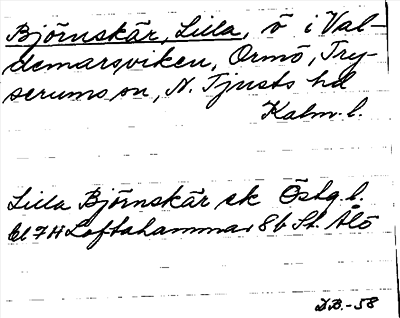 Björnskär, Lilla, ö i Val-
demarsviken, Ormö, Try-
serums sn, N. Tjusts hd
Kalm. l.
Lilla Björnskär ek Östg. l.
bl 7H Loftahammar 8b St. Ålö
D.B.-58